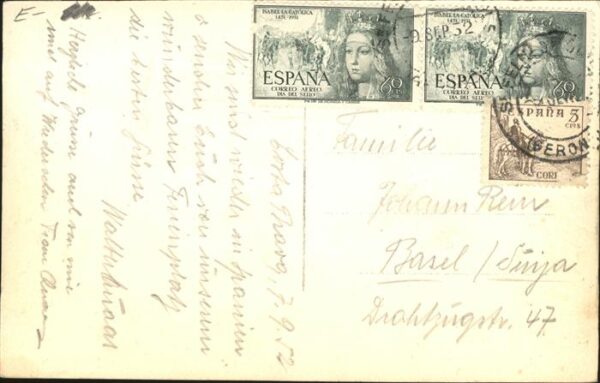 Costa Brava, 7.9.52
Wir sind wieder in Spanien
& senden Euch von unserm
wunderbaren Ferienplatz
die besten Grüsse
Herzliche Grüsse auch von mir
und auf Wiedersehen
Familie
Johann
Basel /
47
ISABEL LA CATOLICA
1451-1951
ESPAÑA
CORREO AEREO
DIA DEL SELLO
60
ISABEL LA CATOLICA
1451-1951
ESPAÑA
CORREO AEREO
DIA DEL SELLO
60
-9 SEP. 52
ESPAÑA 5
CTS
CORREOS